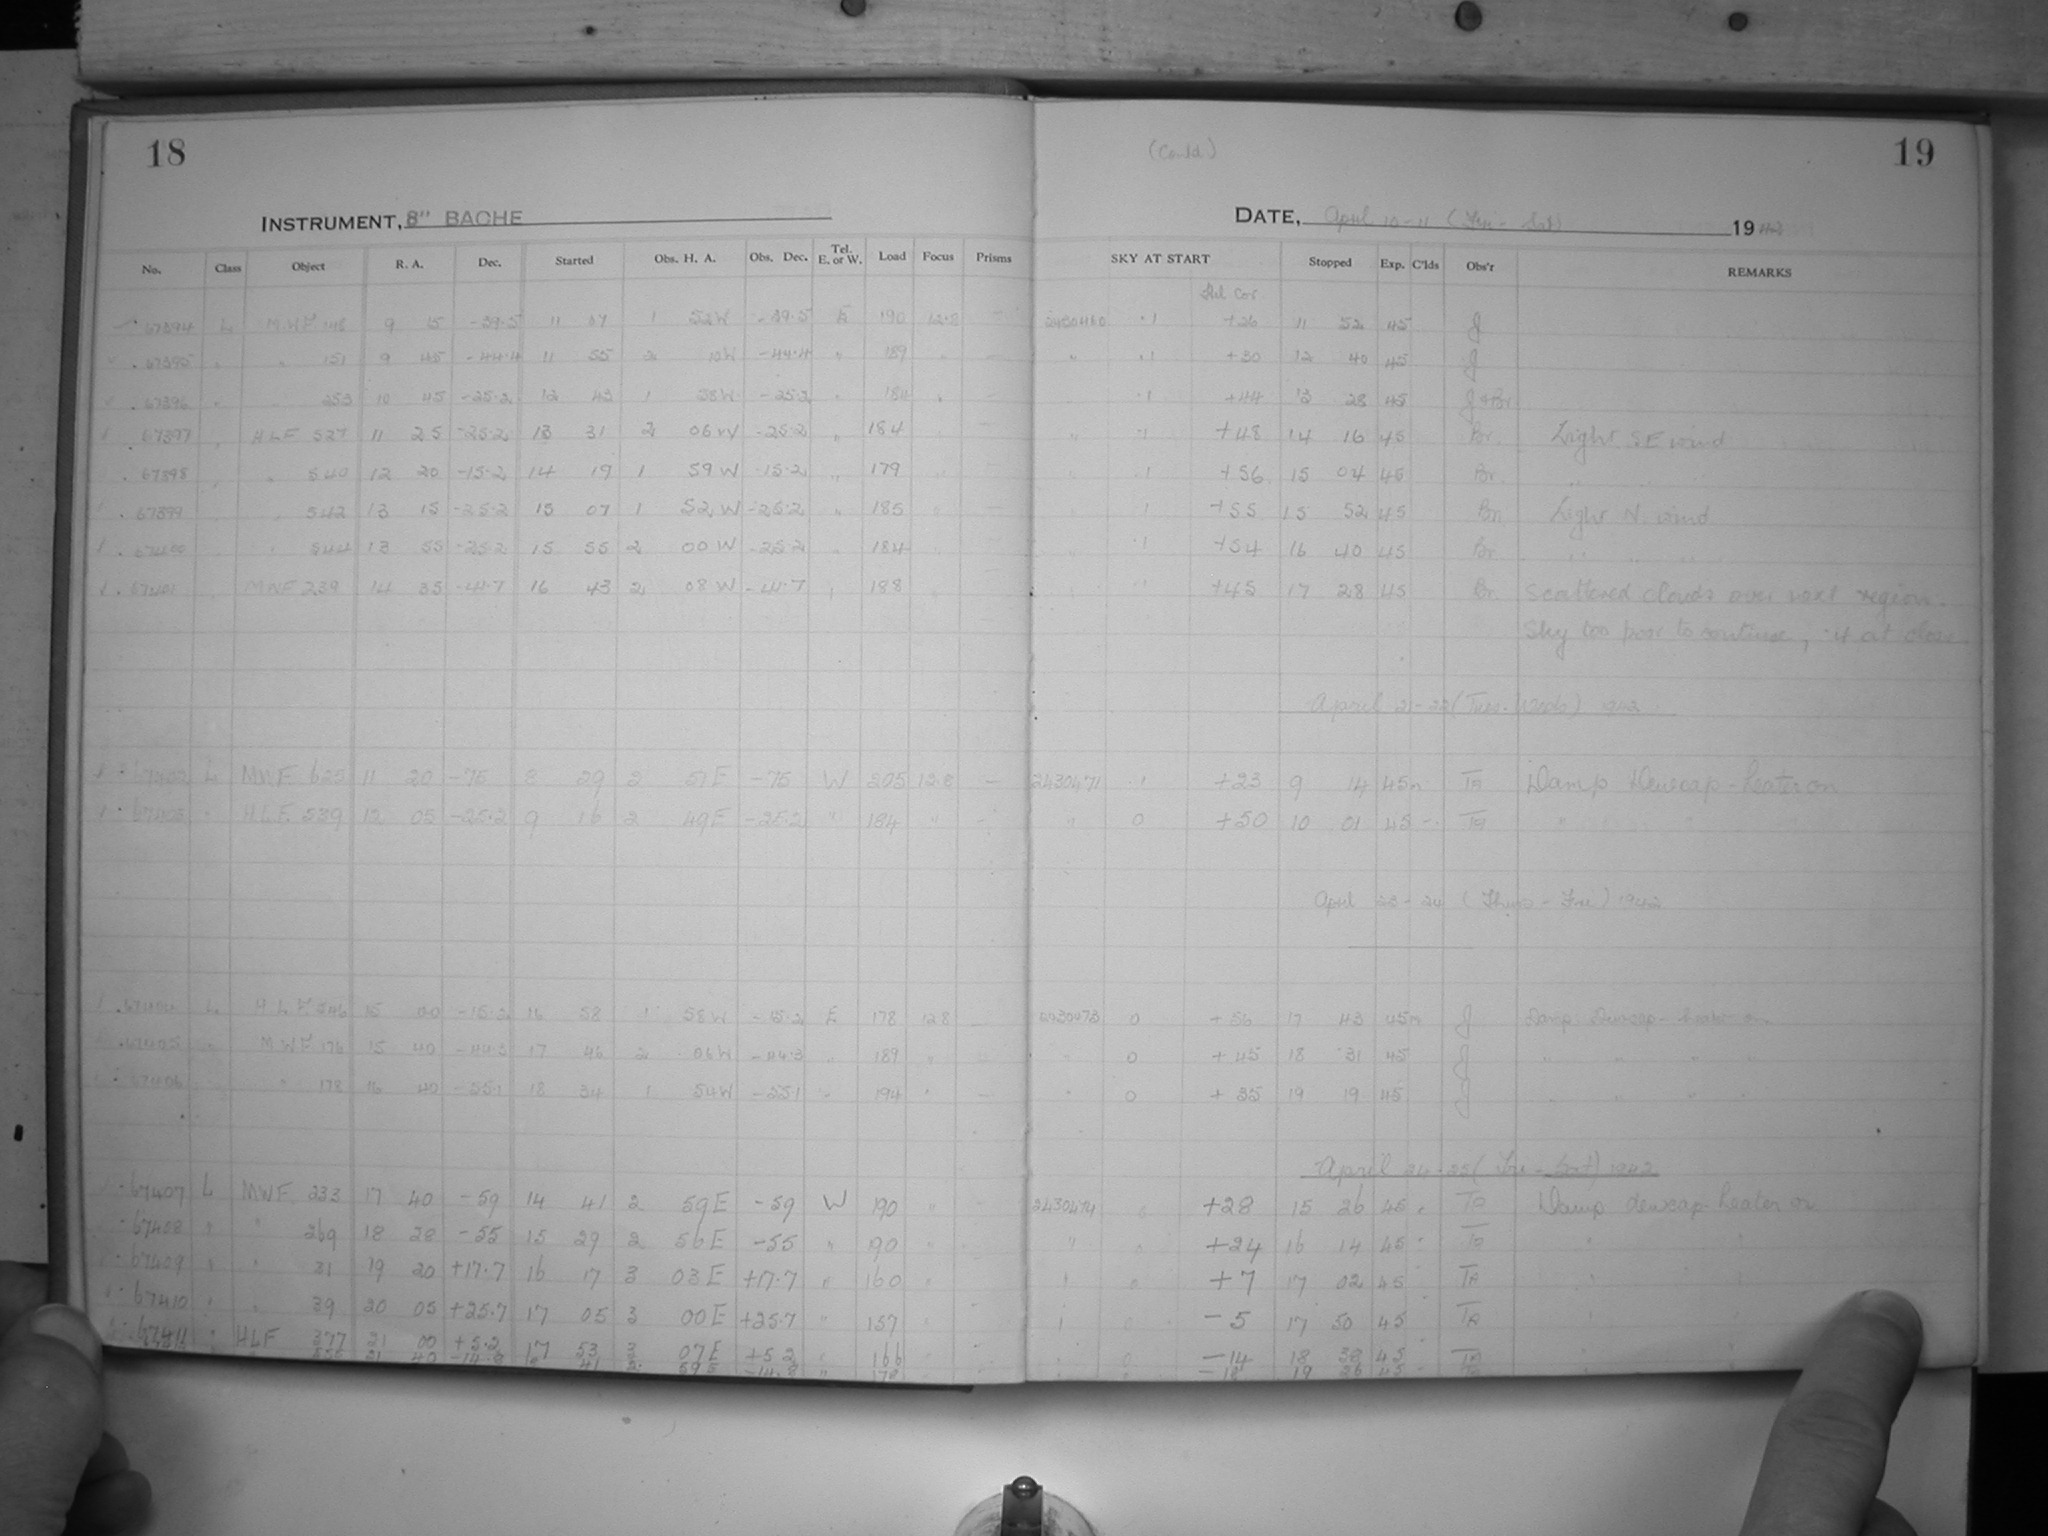 18
(Contd)
19
INSTRUMENT, 8" BACHE
DATE, April 10-11 (Fri - Sat) 1942
No. Class Object R. A. Dec. Started Obs. H. A. Obs. Dec. Tel. E. or W. Load Focus Prisms SKY AT START Stopped Exp. C'lds Obs'r REMARKS
67394 L MWF 148 9 15 -39.5 11 07 1 52W -39.5 E 190 12.8 — 2430460 .1 +26 11 52 45 J
67395 " " 151 9 45 -44.4 11 55 2 10W -44.4 " 189 " .1 +30 12 40 45 J
67396 " 253 10 45 -25.2 12 43 1 58W -25.2 " 184 " .1 +44 13 28 45 J+Br
67397 HLF 527 11 25 -25.2 13 31 2 06W -25.2 " 184 " .1 +48 14 16 45 Br. Light SE wind
67398 " 540 12 20 -15.2 14 19 1 59W -15.2 " 179 " .1 +56 15 04 45 Br. " "
67399 " 542 13 15 -25.2 15 07 1 52W -25.2 " 185 .1 +55 15 52 45 Br. Light N. wind
67400 " 544 13 55 -25.2 15 55 2 00W -25.2 " 184 .1 +54 16 40 45 Br. " " "
67401 MWF 239 14 35 -41.7 16 43 2 08W -41.7 " 188 +45 17 28 45 Br. Scattered clouds over next region.
Sky too poor to continue, .4 at close
April 21-22 (Tues. Weds) 1942
67402 L MWF 625 11 20 -75 8 29 2 51E -75 W 205 12.8 — 2430471 .1 +23 9 14 45m TA Damp Dewcap-heater on
67403 " HLF 539 12 05 -25.2 9 16 2 49E -25.2 " 184 " — " 0 +50 10 01 45 TA "
April 23-24 (Thurs - Fri) 1942
67404 L HLF 546 15 00 -15.2 16 58 1 58W -15.2 E 178 12.8 2430473 0 +56 17 43 45m J Damp Dewcap-heater on
67405 " MWF 176 15 40 -44.3 17 46 2 06W -44.3 " 189 " " 0 +45 18 31 45 J " " " "
67406 " 178 16 40 -55.1 18 34 1 54W -55.1 " 194 " — " 0 +35 19 19 45 J " " " "
April 24-25 (Fri - Sat) 1942
67407 L MWF 233 17 40 -59 14 41 2 59E -59 W 190 " 2430474 0 +28 15 26 45 TA Damp dewcap-heater on
67408 " " 269 18 28 -55 15 29 2 56E -55 " 190 " " 0 +24 16 14 45 TA " "
67409 " " 81 19 20 +17.7 16 17 3 03E +17.7 " 160 " " 0 +7 17 02 45 TA " "
67410 " " 39 20 05 +25.7 17 05 3 00E +25.7 " 157 " 0 -5 17 50 45 TA
67411 " HLF 377 21 00 +5.2 17 53 3 07E +5.2 " 166 " 0 -14 18 38 45 TA
21 40 -14.8 41 2 59E -14.8 " -18 19 26 45 TA